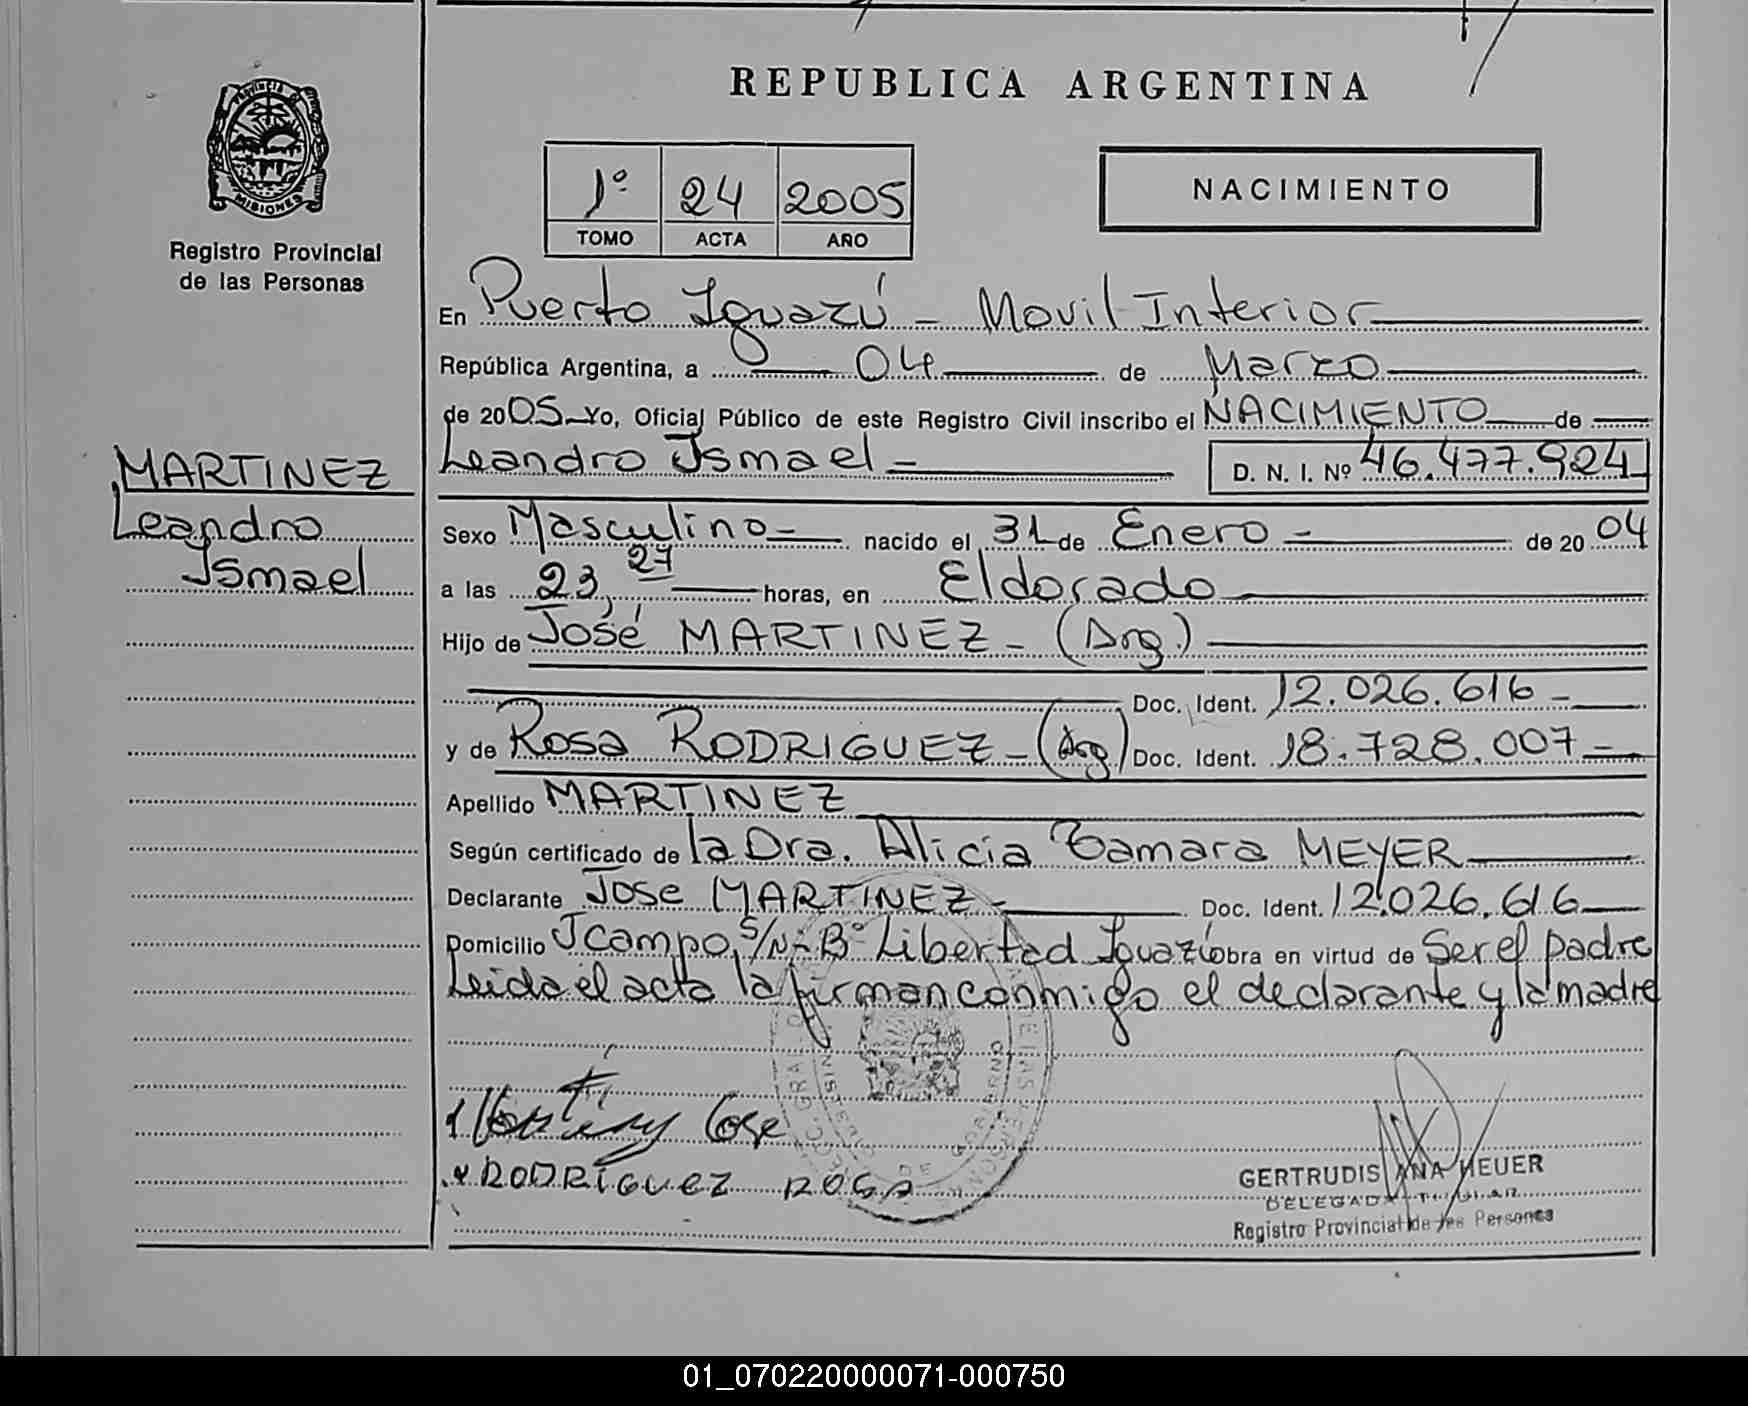 REPUBLICA ARGENTINA
PROVINCIA DE
MISIONES
Registro Provincial
de las Personas
1º 24 2005
TOMO ACTA AÑO
NACIMIENTO
En Puerto Iguazú - Movil Interior
República Argentina, a 04 de Marzo
de 2005 Yo, Oficial Público de este Registro Civil inscribo el NACIMIENTO de
Leandro Ismael - D. N. I. Nº 46.477.924
MARTINEZ
Leandro
Ismael
Sexo Masculino - nacido el 31 de Enero - de 2004
a las 23,27 horas, en Eldorado
Hijo de José MARTINEZ - (Arg.)
Doc. Ident. 12.026.616 -
y de Rosa RODRIGUEZ - (Arg) Doc. Ident. 18.728.007 -
Apellido MARTINEZ
Según certificado de la Dra. Alicia Tamara MEYER
Declarante Jose MARTINEZ - Doc. Ident. 12.026.616
Domicilio J campo, S/N - Bº Libertad Iguazú obra en virtud de Ser el padre
Leida el acta la firman conmigo el declarante y la madre
Martinez Jose
RODRIGUEZ ROSA
GERTRUDIS ANA HEUER
DELEGADA TITULAR
Registro Provincial de las Personas
01_070220000071-000750